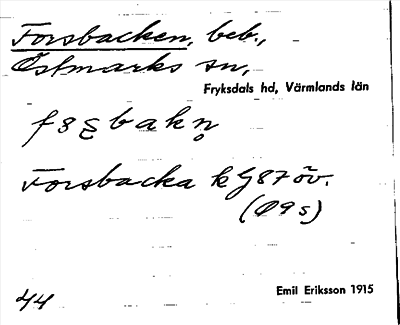 Forsbacken, beb.,
Östmarks sn,
Fryksdals hd, Värmlands län
Forsbacka k G87 öv.
(Ø9s)
44
Emil Eriksson 1915